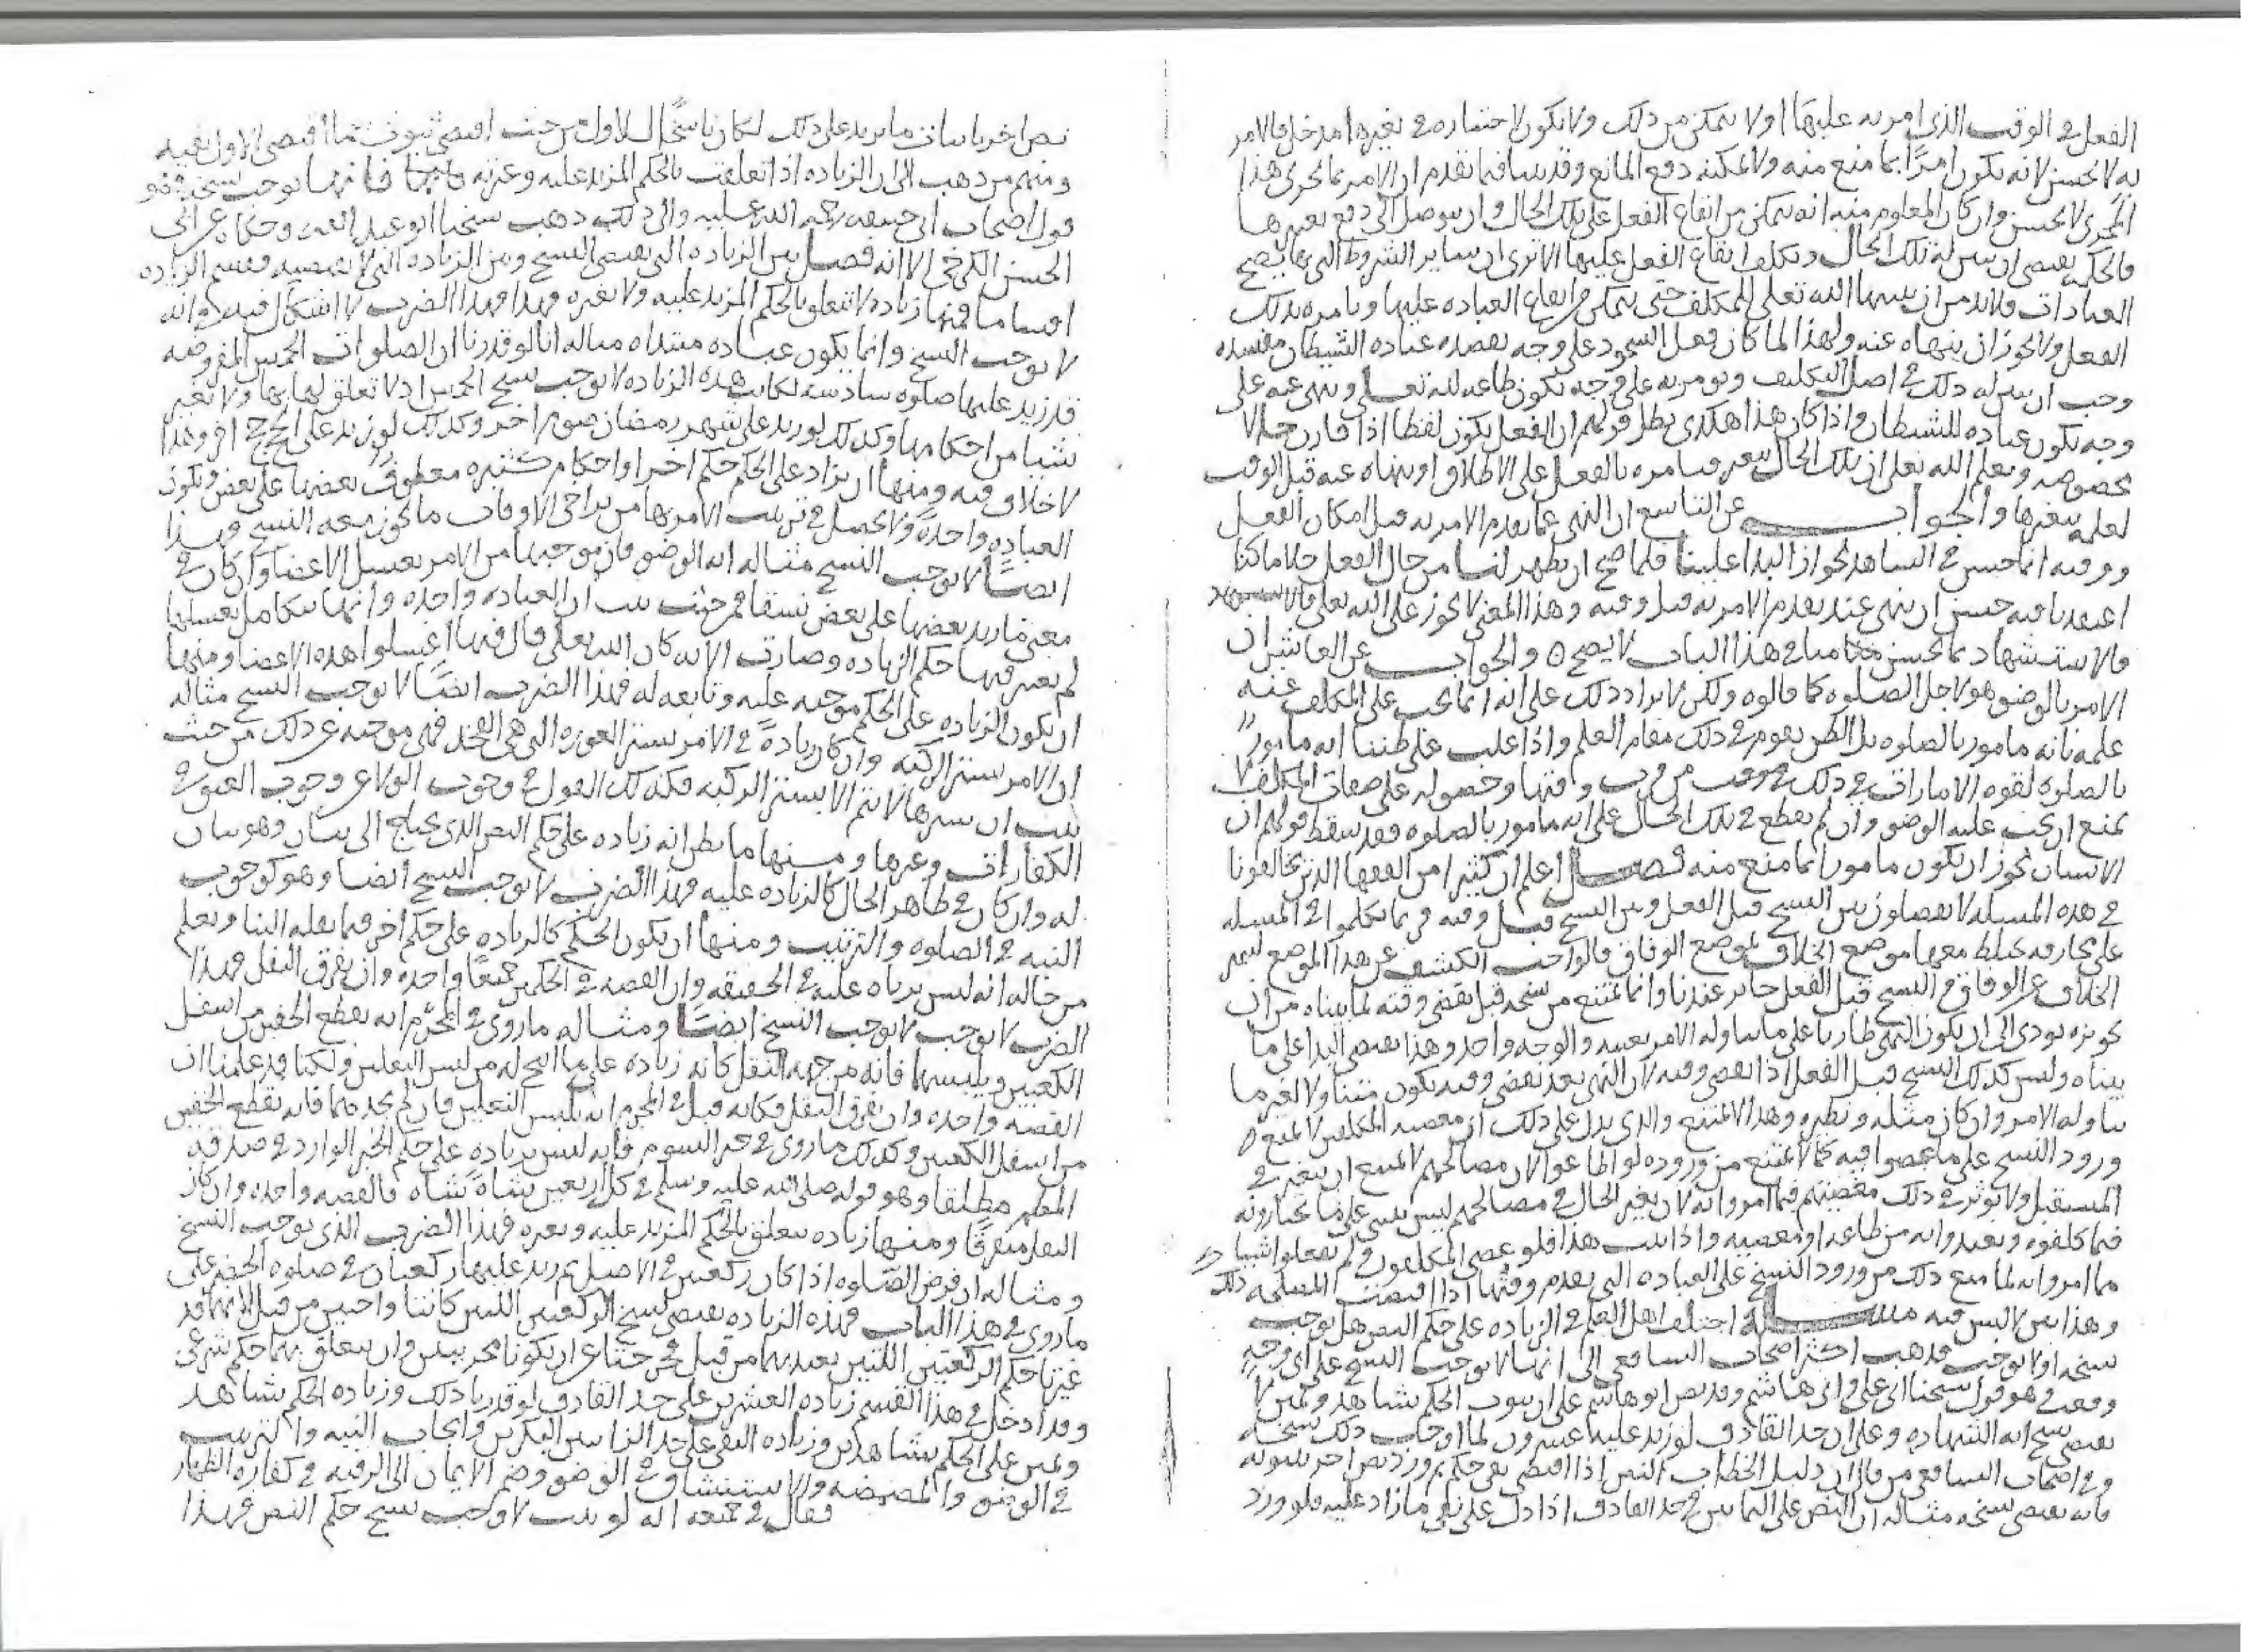 الفعل في الوقت الذي امر به عليها اولا يتمكن من ذلك ولا يكون لاختياره في تغييرها مدخل فالامر
به لا يحسن لانه يكون امرًا بما منع منه ولا يمكنه دفع المانع وقد بينا فيما تقدم ان الامر بما يجرى هذا
المجرى لا يحسن وان كان المعلوم منه انه يتمكن من ايقاع الفعل على تلك الحال وان يتوصل الى دفع تغييرها
فالحكمه تقتضي ان يبين له تلك الحال وتكلف ايقاع الفعل عليها الا ترى ان ساير الشروط التي بها يصح
العبادات فلابد من ان يبينها الله تعالى للمكلف حتى يتمكن من ايقاع العباده عليها ويامره بذلك
الفعل ولا يجوز ان ينهاه عنه ولهذا لما كان فعل السجود على وجه يقصد به عباده الشيطان مفسده
وجب ان يبين له ذلك في اصل التكليف ويومر به على وجه يكون طاعه لله تعالى وينهى عنه على
وجه يكون عباده للشيطان واذا كان هذا هكذى بطل قولهم ان الفعل يكون لفظا اذا قارن حالا
مخصوصه ويعلم الله تعالى ان تلك الحال تتغير فيامره بالفعل على الاطلاق او ينهاه عنه قبل الوقت
لعلمه بتغيرها والجواب عن التاسع ان النهي عما تقدم الامر به قبل امكان الفعل
ووقته انما حسن في الشاهد لجواز البدا علينا فلما صح ان يظهر لنا من حال الفعل خلاف ما كنا
اعتقدنا فيه حسن ان ننهى عند تقدم الامر به قبل وقته وهذا المعنى لا يجوز على الله تعالى
فالاستشهاد بما يحسن منا في هذا الباب لا يصح ٥ والجواب عن العاشر ان
الامر بالوضو هو لاجل الصلوه كما قالوه ولكن لا يراد ذلك على انه انما يجب على المكلف عند
علمه بانه مامور بالصلوه بل الظن يقوم في ذلك مقام العلم واذا غلب على ظننا انه مامور
بالصلوه لقوه الامارات في ذلك من قرب وقتها وحصوله على صفات المكلف لا
يمتنع ان يجب عليه الوضو وان لم يقطع في تلك الحال على انه مامور بالصلوه فقد سقط قولهم ان
الانسان يجوز ان يكون مامورا بما منع منه فصل اعلم ان كثيرا من الفقها الذين يخالفونا
في هذه المسئله لا يفصلون بين النسخ قبل الفعل وبين النسخ قبل وقته وربما تكلموا في المسئله
على طريقه يختلط معها موضع الخلاف بموضع الوفاق فالواجب الكشف عن هذا الموضع ليتميز
الخلاف عن الوفاق فالنسخ قبل الفعل جائز عندنا وانما يمتنع من نسخه قبل تقضي وقته لما بيناه من ان
تجويزه يودي الى ان يكون النهي طاريا على ما تناوله الامر بعينه والوجه واحد وهذا يقتضي البدا على ما
بيناه وليس كذلك النسخ قبل الفعل اذا تقضي وقته لان النهي بعد تقضي وقته يكون متناولا لغير ما
تناوله الامر وان كان مثله ونظيره وهذا لا يمتنع والذي يدل على ذلك ان معصيه المكلفين لا تمنع من
ورود النسخ على ما عصوا فيه كما لا يمتنع من وروده لو اطاعوا لان مصالحهم لا يمتنع ان تتغير في
المستقبل ولا يوثر في ذلك معصيتهم فيما امروا به لان تغير الحال في مصالحهم ليس يبنى على ما يختارونه
فيما كلفوه وتعبدوا به من طاعه او معصيه واذا ثبت هذا فلو عصى المكلفون ولم يفعلوا شيئا
مما امروا به لما منع ذلك من ورود النسخ على العباده التي تقدم وقتها اذا اقتضت المصلحه ذلك
وهذا بين لا لبس فيه مسئله اختلف اهل العلم في الزياده على حكم النص هل توجب
نسخه او لا توجب فذهب اكثر اصحاب الشافعي الى انها لا توجب النسخ على اي وجه
وقعت وهو قول شيخنا ابي علي وابي هاشم وقد نص ابو هاشم على ان ثبوت الحكم بشاهد ويمين لا
يقتضي نسخ ايه الشهاده وعلى ان حد القاذف لو زيد عليه عشرون لما اوجب ذلك نسخه
وفي اصحاب الشافعي من قال ان دليل الخطاب النص اذا اقتضى نفي حكم ثم ورد نص اخر بثبوته
فانه يقتضي نسخه مثاله ان النص على الثمانين في حد القاذف اذا دل على نفي ما زاد عليه فلو ورد
نص اخر باثبات ما يزيد على ذلك لكان ناسخًا للاول من حيث اقتضى ثبوت ما اقتضى الاول نفيه
ومنهم من ذهب الى ان الزياده اذا تعلقت بالحكم المزيد عليه وغيرته فانها توجب نسخه وهو
قول اصحاب ابي حنيفه رحمه الله عليه والى ذلك ذهب شيخنا ابو عبد الله وحكاه عن ابي
الحسن الكرخي الا انه فصل بين الزياده التي تقتضي النسخ وبين الزياده التي لا تقتضيه وقسم الزياده
اقساما فمنها زياده لا تتعلق بالحكم المزيد عليه ولا تغيره فهذا الضرب لا اشكال فيه وانه
لا يوجب النسخ وانما يكون عباده مبتداه مثاله انا لو قدرنا ان الصلوات الخمس المفروضه
قد زيد عليها صلوه سادسه لكانت هذه الزياده لا توجب نسخ الخمس اذ لا تعلق لها بها ولا تغير
شيئا من احكامها وكذلك لو زيد على شهر رمضان صوم اخر وكذلك لو زيد على الحج حج اخر وهذا
لا خلاف فيه ومنها ان يزاد على الحكم حكم اخر او احكام كثيره معطوف بعضها على بعض ويكون
العباده واحدةً ولا يحصل في ترتيب الامر بها من تراخي الاوقات ما يجوز معه النسخ وهذا
ايضًا لا يوجب النسخ مثاله ايه الوضو فان موجبها من الامر بغسل الاعضا وان كان في
معنى ما زيد بعضها على بعض نسقا فمن حيث ثبت ان العباده واحده وانها تتكامل بغسلها
لم يعتبر فيها حكم الزياده وصارت الايه كان الله تعالى قال فيها اغسلوا هذه الاعضا ومنها
ان يكون الزياده على الحكم موجبه عليه وتابعه له فهذا الضرب ايضًا لا يوجب النسخ مثاله
ان الامر بستر الركبه وان كان زيادةً في الامر بستر العوره التي هي الفخذ فهي موجبه عن ذلك من حيث
ثبت ان سترها لا يتم الا بستر الركبه فكذلك القول في وجوب الولا عن وجوب العتق في
الكفارات وغيرها ومنها ما يظن انه زياده على حكم النص الذي يحتاج الى بيان وهو بيان
له وان كان في ظاهر الحال كالزياده عليه فهذا الضرب لا يوجب النسخ ايضا وهو كوجوب
النيه في الصلوه والترتيب ومنها ان يكون الحكم كالزياده على حكم اخر فيما نقله الينا ويعلم
من حاله انه ليس بزياده عليه في الحقيقه وان القصه في الحكمين جميعًا واحده وان تفرق النقل فهذا
الضرب لا يوجب النسخ ايضًا ومثاله ما روي في المحرم انه يقطع الخفين من اسفل
الكعبين ويلبسهما فانه من جهه النقل كانه زياده على ما ابيح له من لبس النعلين ولكنا قد علمنا ان
القصه واحده وان تفرق النقل فكانه قيل في المحرم انه يلبس النعلين فان لم يجدهما فانه يقطع الخفين
من اسفل الكعبين وكذلك ما روي في السوم فانه ليس بزياده على حكم الخبر الوارد في صدقه
الغنم مطلقا وهو قوله صلى الله عليه وسلم في كل اربعين شاةً شاه فالقصه واحده وان كان
النقل متفرقًا ومنها زياده تتعلق بالحكم المزيد عليه وتغيره فهذا الضرب الذي يوجب النسخ
ومثاله ان فرض الصلوه اذا كان ركعتين في الاصل ثم زيد عليها ركعتان في صلوه الحضر على
ما روي في هذا الباب فهذه الزياده تقتضي نسخ الركعتين اللتين كانتا واجبتين من قبل لانهما قد
غيرتا حكم الركعتين اللتين تعبد بهما من قبل فخرجتا عن ان يكونا مجزيتين وان يتعلق بهما حكم شرعي
وقد ادخل في هذا القسم زياده العشرين على حد القاذف لو قدرنا ذلك وزياده الحكم بشاهد
ويمين على الحكم بشاهدين وزياده النفي على حد الزانيين البكرين وايجاب النيه والترتيب
في الوضو والمضمضه والاستنشاق في الوضو وضم الايمان الى الرقبه في كفاره الظهار
فقال في جميعه انه لو ثبت لاوجب نسخ حكم النص فهذا